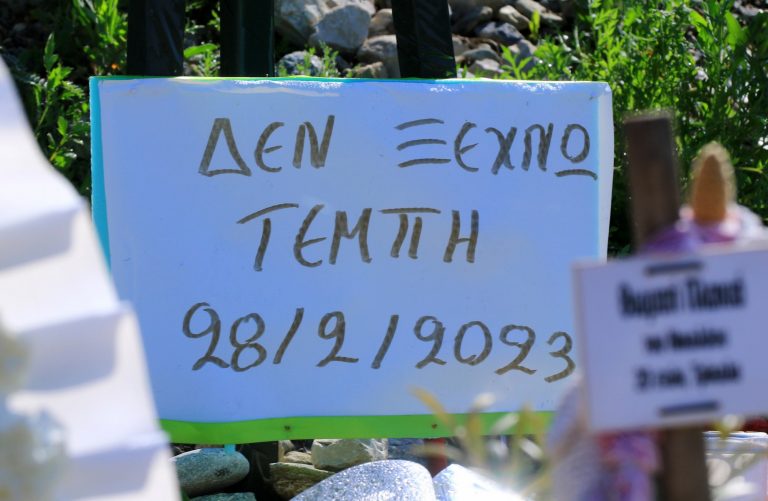 ΔΕΝ ΞΕΧΝΩ
ΤΕΜΠΗ
28/2/2023